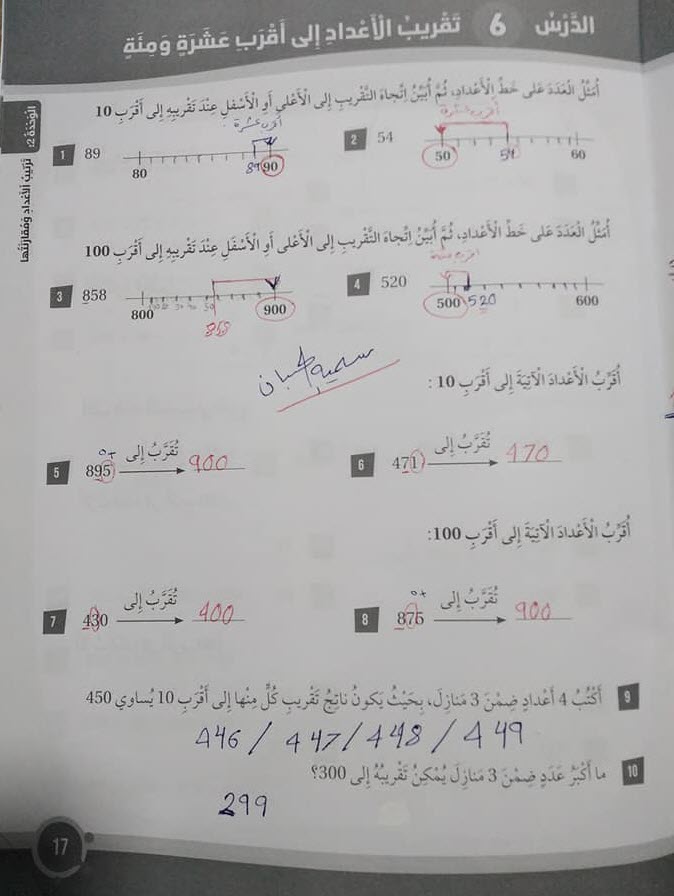 الدَّرْسُ 6 تَقْريبُ الْأَعْدادِ إلى أَقْرَبِ عَشَرَةٍ وَمِئَةٍ
الْوَحْدَةُ 2: تَرْتيبُ الْأَعْدادِ وَمُقارَنَتُها
أُمَثِّلُ الْعَدَدَ عَلى خَطِّ الْأَعْدادِ، ثُمَّ أُبَيِّنُ اتِّجاهَ التَّقْريبِ إلى الْأَعْلى أَوِ الْأَسْفَلِ عِنْدَ تَقْريبِهِ إلى أَقْرَبِ 10
أقرب عشرة
1 89
80 89 90
أقرب عشرة
2 54
50 54 60
أُمَثِّلُ الْعَدَدَ عَلى خَطِّ الْأَعْدادِ، ثُمَّ أُبَيِّنُ اتِّجاهَ التَّقْريبِ إلى الْأَعْلى أَوِ الْأَسْفَلِ عِنْدَ تَقْريبِهِ إلى أَقْرَبِ 100
3 858
800 858 900
4 520
500 520 600
أُقَرِّبُ الْأَعْدادَ الْآتِيَةَ إلى أَقْرَبِ 10 :
5 895 تُقَرَّبُ إلى 900
6 471 تُقَرَّبُ إلى 470
أُقَرِّبُ الْأَعْدادَ الْآتِيَةَ إلى أَقْرَبِ 100:
7 430 تُقَرَّبُ إلى 400
8 875 تُقَرَّبُ إلى 900
9 أَكْتُبُ 4 أَعْدادٍ ضِمْنَ 3 مَنازِلَ، بِحَيْثُ يَكونُ ناتِجُ تَقْريبِ كُلٍّ مِنْها إلى أَقْرَبِ 10 يُساوي 450
446 / 447 / 448 / 449
10 ما أَكْبَرُ عَدَدٍ ضِمْنَ 3 مَنازِلَ يُمْكِنُ تَقْريبُهُ إلى 300؟
299
17